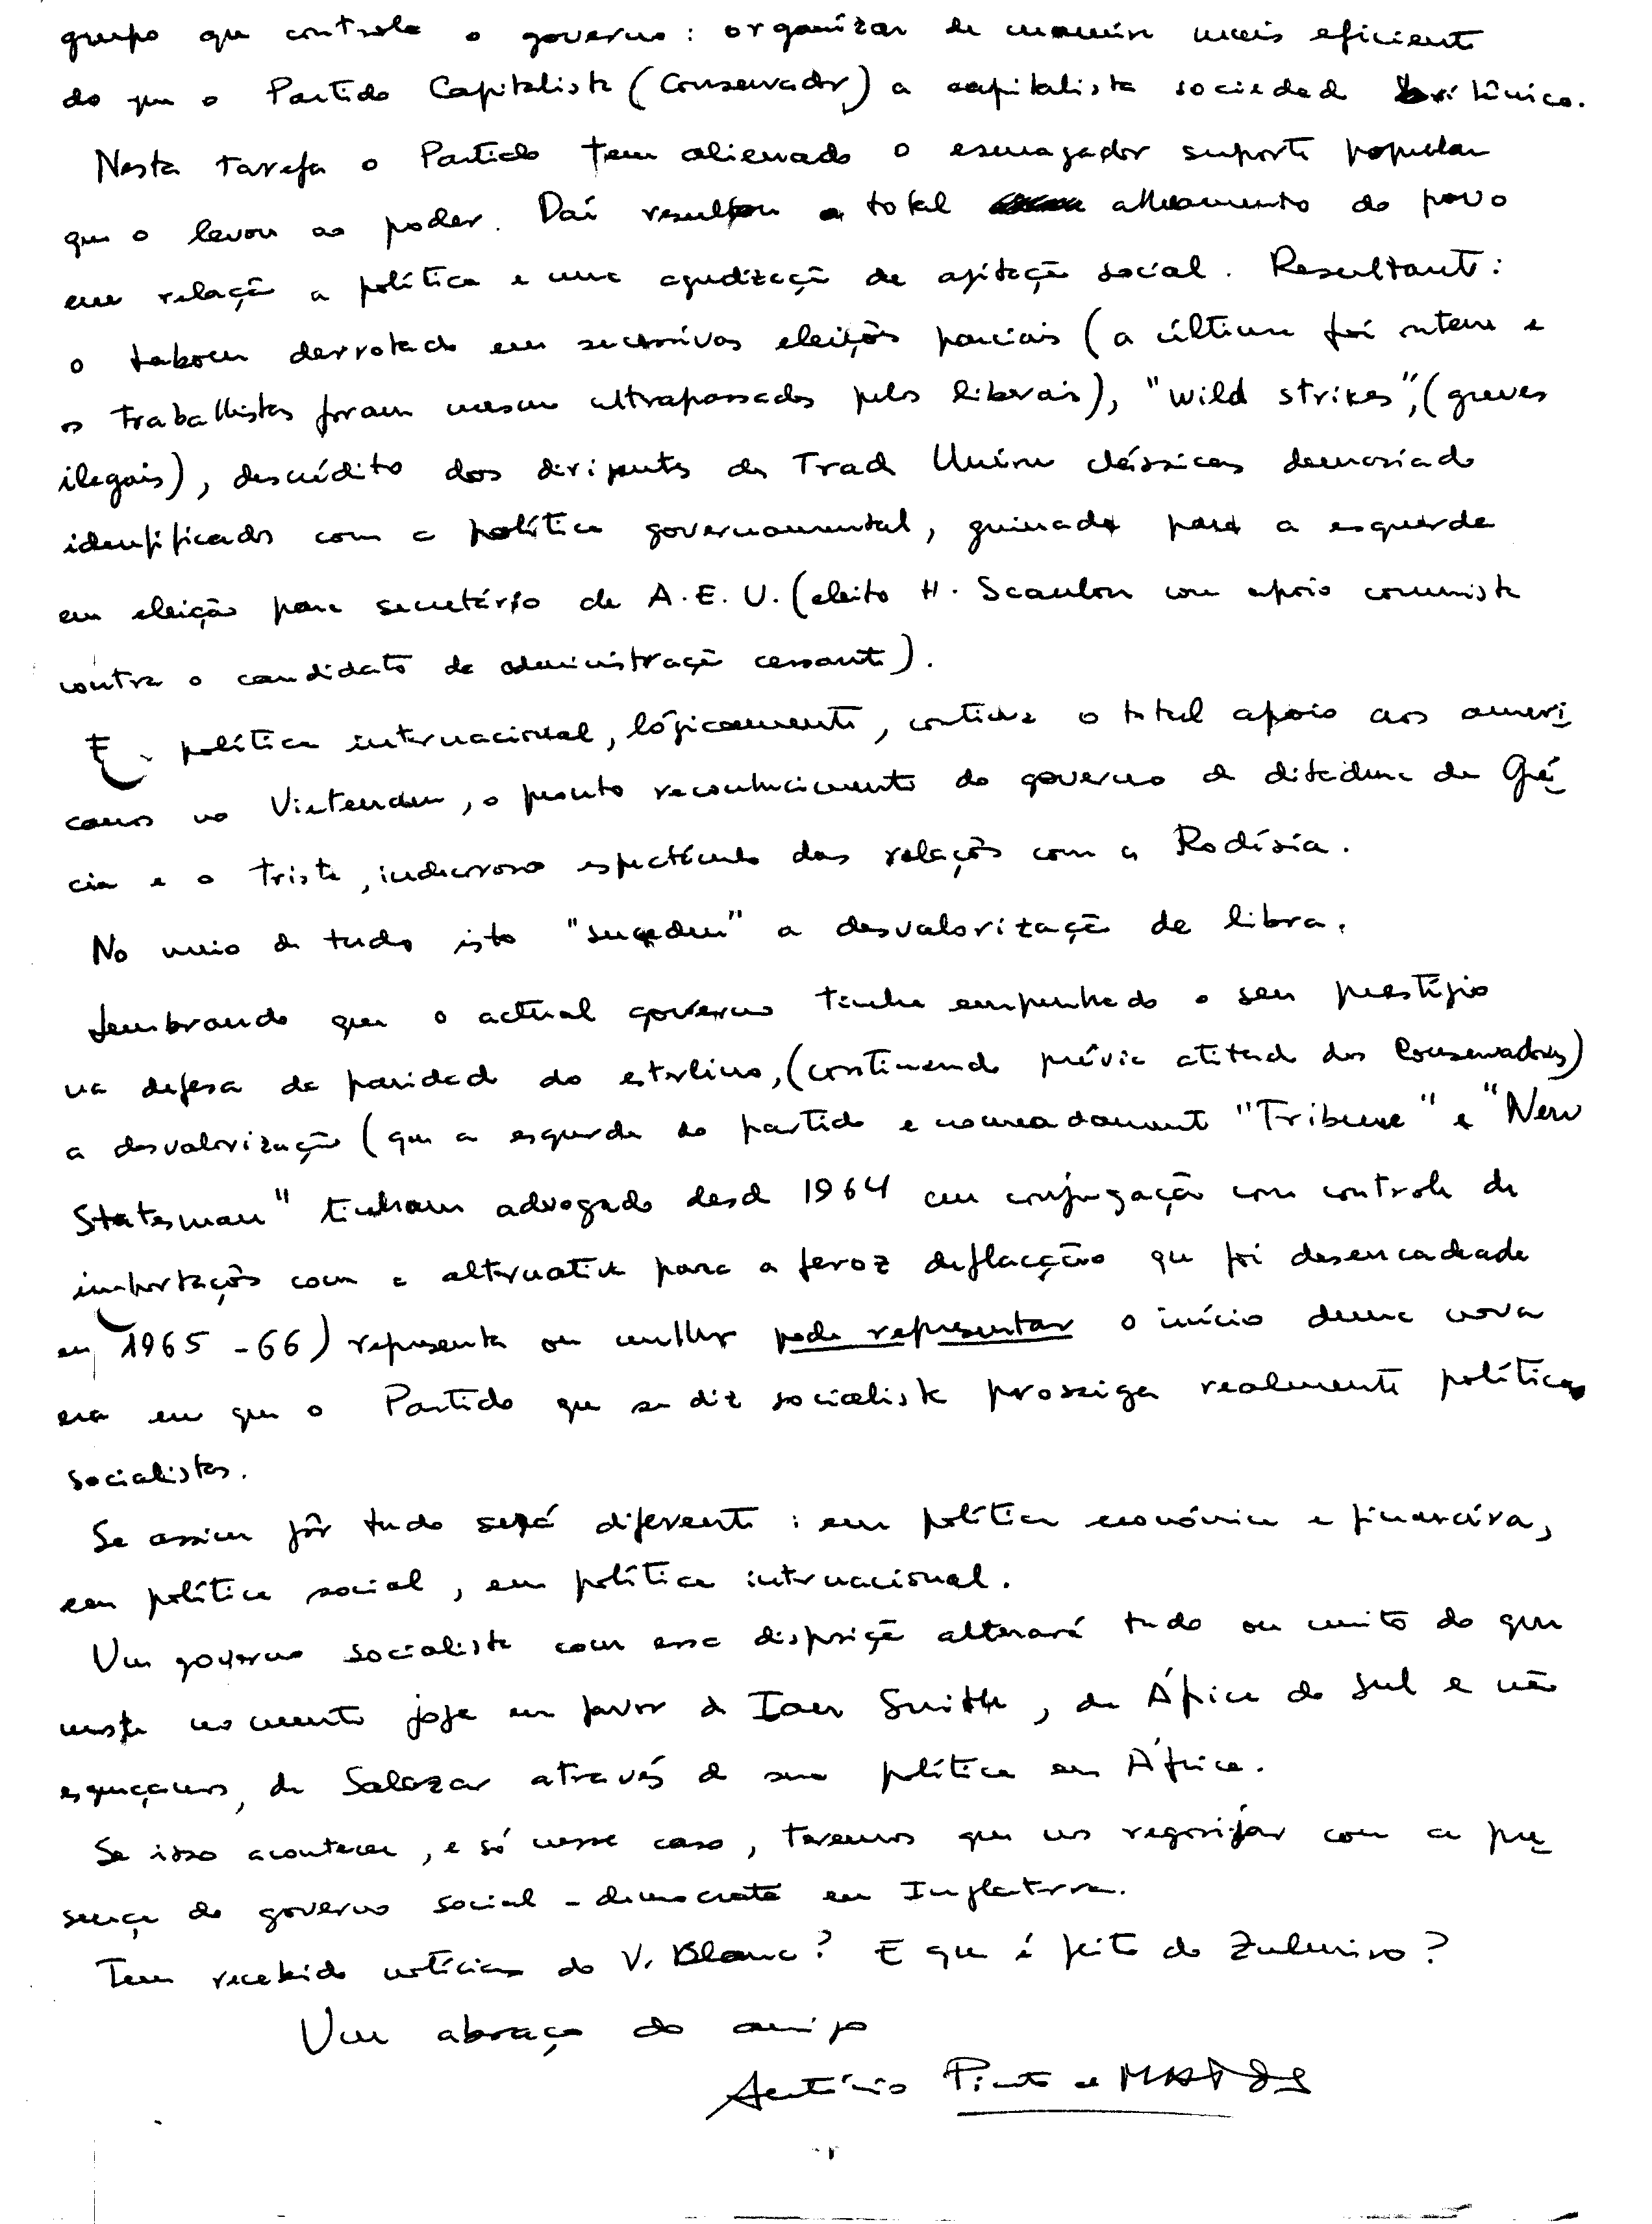 grupo que controla o governo: organizar de maneira mais eficiente
do que o Partido Capitalista (Conservador) a capitalista sociedade britânica.
Nesta tarefa o Partido tem alienado o esmagador suporte popular
que o levou ao poder. Daí resultou o total alheamento do povo
em relação a política e uma agudização da agitação social. Resultante:
o Labour derrotado em sucessivas eleições parciais (a última foi ontem e
os trabalhistas foram mesmo ultrapassados pelos liberais), "wild strikes", (greves
ilegais), descrédito dos dirigentes da Trade Union clássicas demasiado
identificados com a política governamental, guinada para a esquerda
em eleição para secretário da A.E.U. (eleito H. Scanlon com apoio comunista
contra o candidato da administração cessante).
E a política internacional, lógicamente, continua o total apoio aos ameri
canos no Vietnam, o pronto reconhecimento do governo da ditadura da Gré
cia e o triste, indecoroso espectáculo das relações com a Rodésia.
No meio de tudo isto "sucedeu" a desvalorização da libra.
Lembrando que o actual governo tinha empenhado o seu prestígio
na defesa da paridade do esterlino, (continuando prévia atitude dos Conservadores)
a desvalorização (que a esquerda do partido e nomeadamente "Tribune" e "New
Statesman" tinham advogado desde 1964 em conjugação com controle de
importações com a alternativa para a feroz deflacção que foi desencadeada
em 1965-66) representa ou melhor pode representar o início duma nova
era em que o Partido que se diz socialista prossiga realmente políticas
socialistas.
Se assim fôr tudo será diferente: em política económica e financeira,
em política social, em política internacional.
Um governo socialista com essa disposição alterará tudo ou muito do que
neste momento joga em favor de Ian Smith, da África do Sul e não
esqueçamos, de Salazar através da sua política em África.
Se isso acontecer, e só nesse caso, teremos que nos regosijar com a pre
sença do governo social-democrata em Inglaterra.
Tem recebido notícias do V. Blanc? E que é feito do Zulmiro?
Um abraço do amigo
António Pinto de MATOS